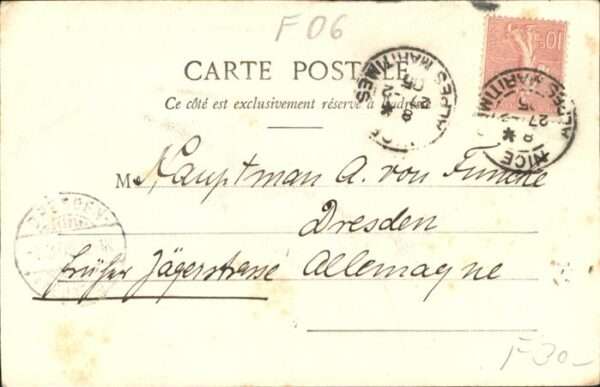 F 06
CARTE POSTALE
Ce côté est exclusivement réservé à l'adresse
10
NICE
ALPES MARITIMES
8 *
27 -2
05
NICE
ALPES MARITIMES
8 *
27 -2
05
M Hauptman A. von Funcke
Dresden
DRESDEN
früher Jägerstrasse Allemagne
F30-